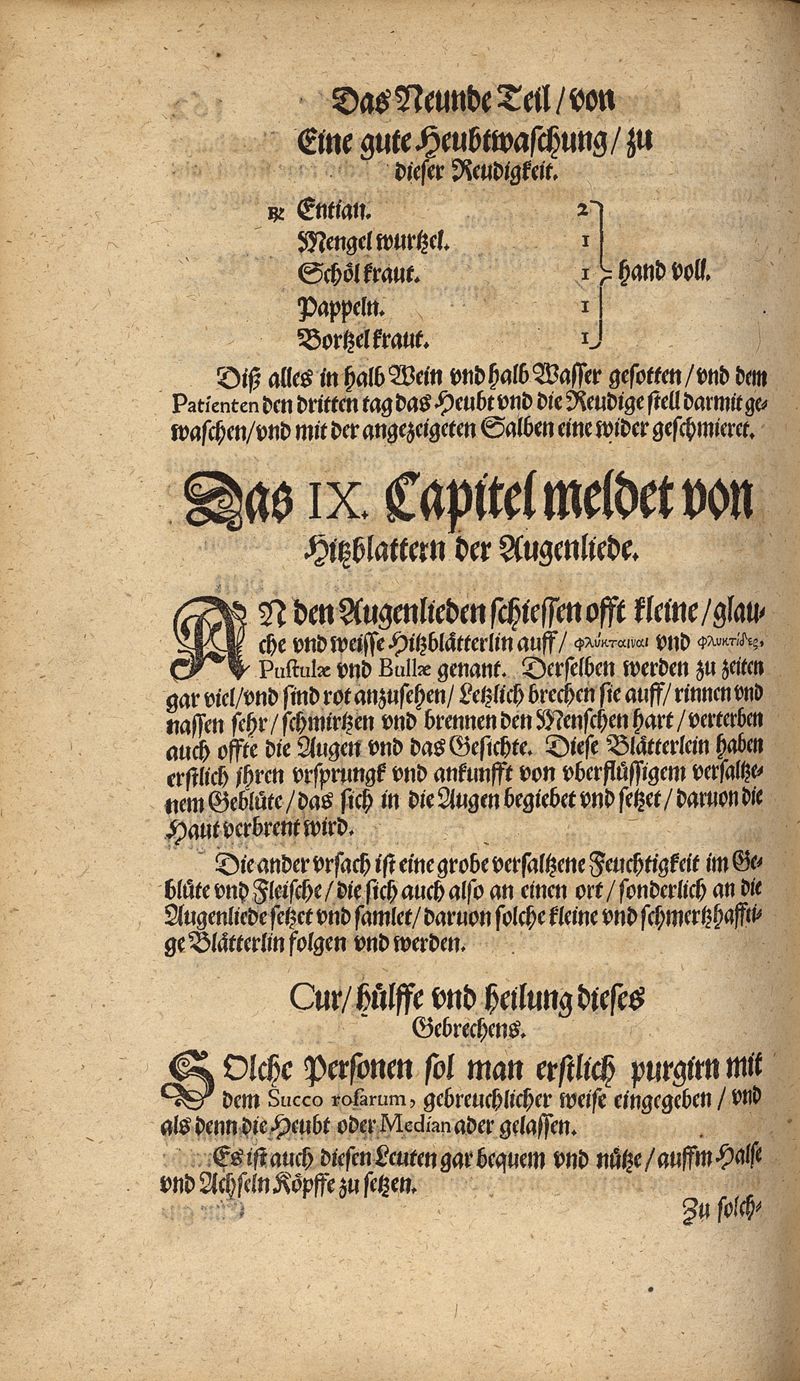 Das Neunde Teil/von
Eine gute Heubtwaschung/ zu
dieser Reudigkeit.
℞ Entian. 2
Mengel wurtzel. 1
Schölkraut. 1 hand voll.
Pappeln. 1
Bortzelkraut. 1
Diß alles in halb Wein vnd halb Wasser gesotten/vnd dem
Patienten den dritten tag das Heubt vnd die Reudige stell darmit ge-
waschen/vnd mit der angezeigeten Salben eine wider geschmieret.
Das IX. Capitel meldet von
Hitzblattern der Augenliede.
AN den Augenlieden schiessen offt kleine/glau-
che vnd weisse Hitzblätterlin auff/ φλύκταιναι vnd φλυκτίδες,
Pustulæ vnd Bullæ genant. Derselben werden zu zeiten
gar viel/vnd sind rot anzusehen/ Letzlich brechen sie auff/ rinnen vnd
nassen sehr/schmirtzen vnd brennen den Menschen hart/verterben
auch offte die Augen vnd das Gesichte. Diese Blätterlein haben
erstlich jhren vrsprungk vnd ankunfft von vberflüssigem versaltze-
nem Geblüte/das sich in die Augen begiebet vnd setzet/daruon die
Haut verbrent wird.
Die ander vrsach ist eine grobe versaltzene Feuchtigkeit im Ge-
blüte vnd Fleische/die sich auch also an einen ort/sonderlich an die
Augenliede setzet vnd samlet/daruon solche kleine vnd schmertzhaffti-
ge Blätterlin folgen vnd werden.
Cur/ hülffe vnd heilung dieses
Gebrechens.
SOlche Personen sol man erstlich purgirn mit
dem Succo rosarum, gebreuchlicher weise eingegeben/vnd
als denn die Heubt oder Median ader gelassen.
Es ist auch diesen Leuten gar bequem vnd nütze/auffm Halse
vnd Achseln Köpffe zu setzen.
Zu solch-